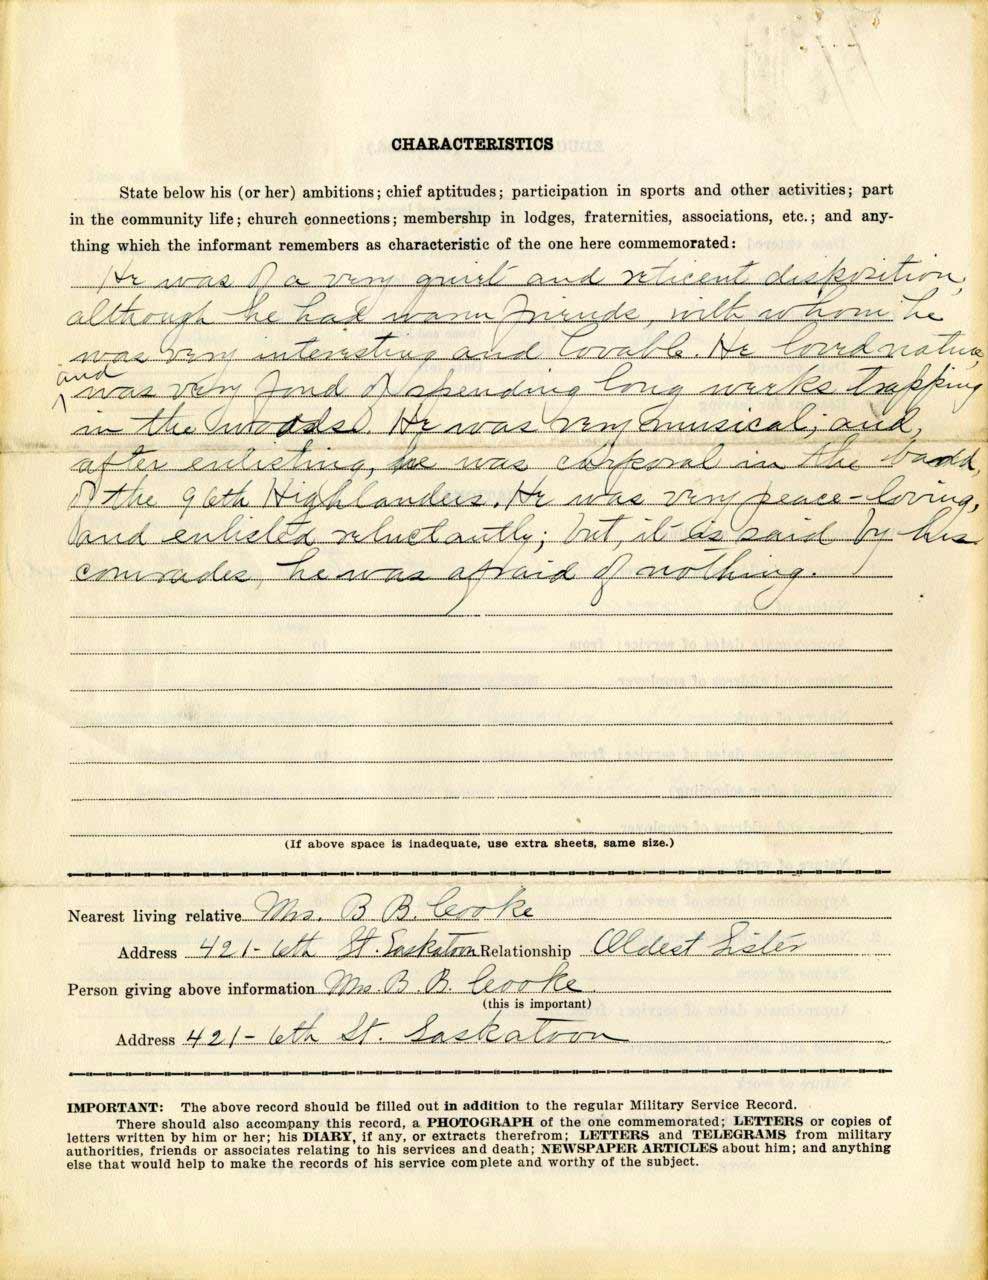 CHARACTERISTICS
State below his (or her) ambitions; chief aptitudes; participation in sports and other activities; part
in the community life; church connections; membership in lodges, fraternities, associations, etc.; and any-
thing which the informant remembers as characteristic of the one here commemorated:
He was of a very quiet and reticent disposition,
although he had warm friends, with whom he
was very interesting and lovable. He loved nature,
and
^ was very fond of spending long weeks trapping
in the woods. He was very musical; and,
after enlisting, he was corporal in the band,
of the 96th Highlanders. He was very peace-loving,
and enlisted reluctantly; but, it is said by his
comrades, he was afraid of nothing.
(If above space is inadequate, use extra sheets, same size.)
Nearest living relative Mrs. B B. Cooke
Address 421-6th St. Saskatoon Relationship Oldest Sister
Person giving above information Mrs. B. B. Cooke
(this is important)
Address 421-6th St. Saskatoon
IMPORTANT: The above record should be filled out in addition to the regular Military Service Record.
There should also accompany this record, a PHOTOGRAPH of the one commemorated; LETTERS or copies of
letters written by him or her; his DIARY, if any, or extracts therefrom; LETTERS and TELEGRAMS from military
authorities, friends or associates relating to his services and death; NEWSPAPER ARTICLES about him; and anything
else that would help to make the records of his service complete and worthy of the subject.